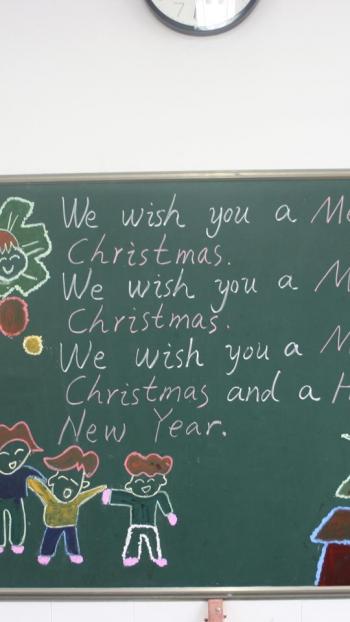 7
We wish you a Me
Christmas.
We wish you a M
Christmas.
We wish you a M
Christmas and a H
New Year.